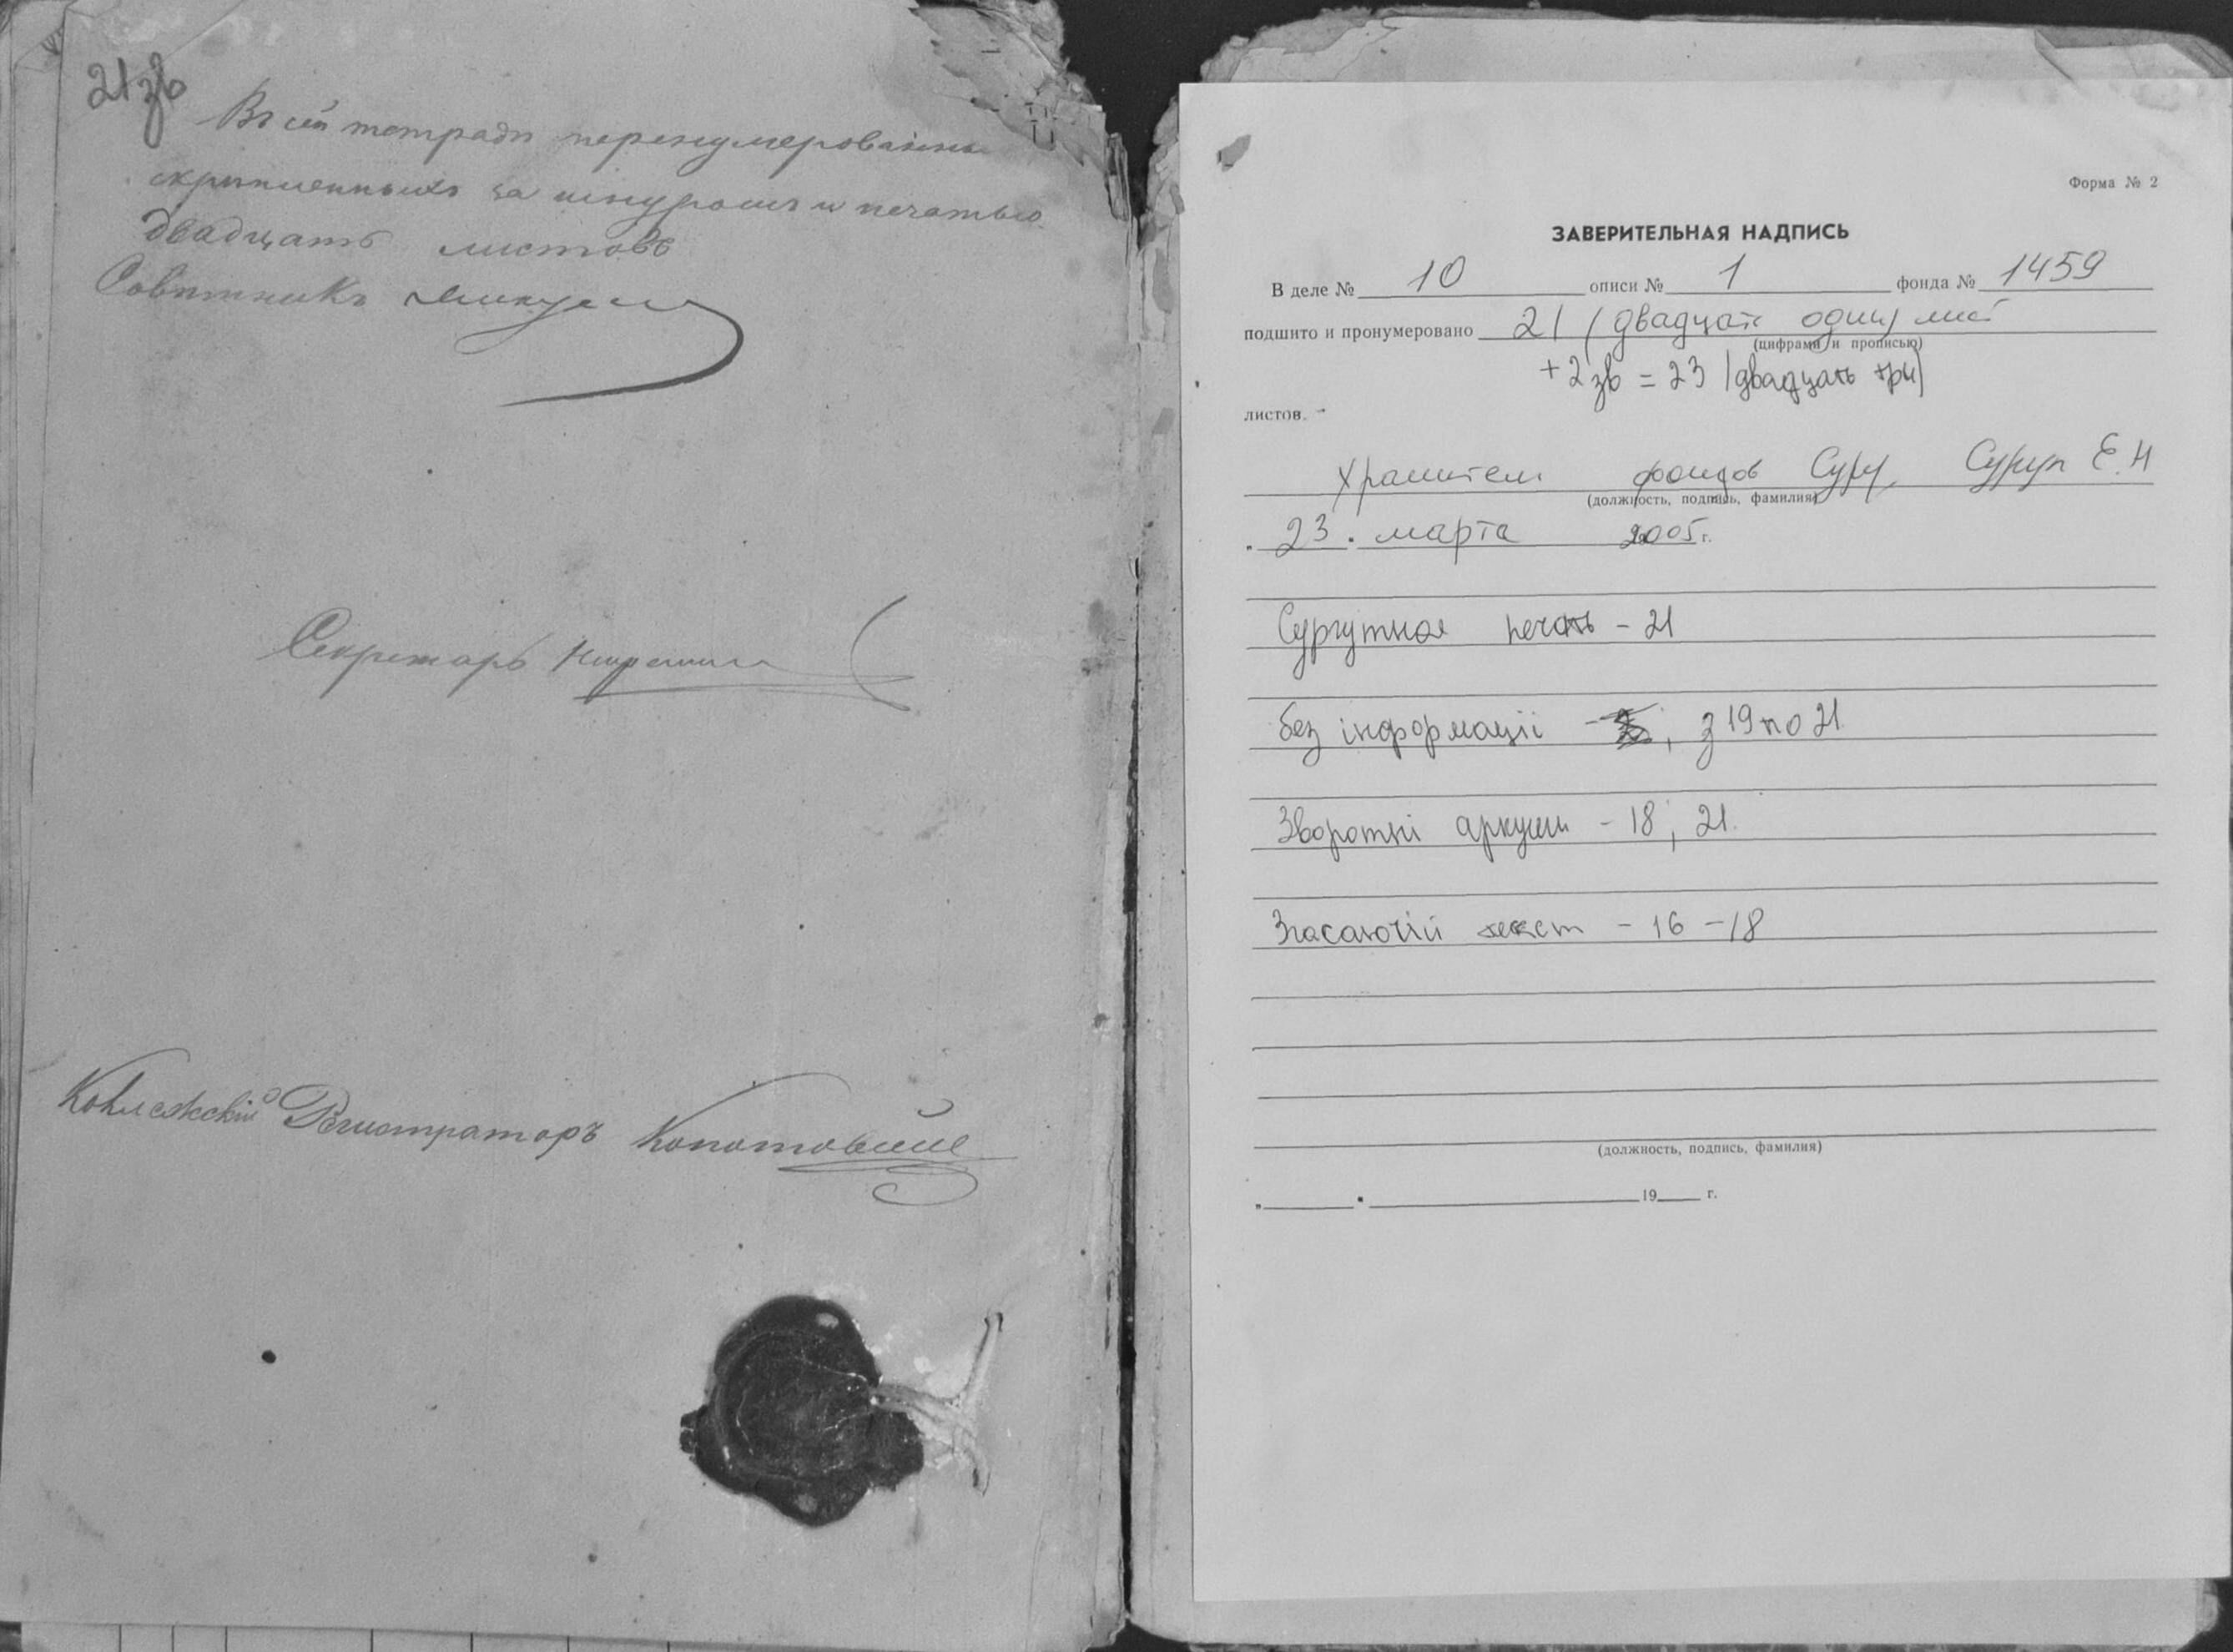 21зв
Въ сей тетради перенумерованныхъ
скрепленныхъ за шнуромъ и печатью
двадцать листовъ
Советникъ
Секретарь
Коллежскій Регистраторъ
Форма № 2
ЗАВЕРИТЕЛЬНАЯ НАДПИСЬ
В деле № 10 описи № 1 фонда № 1459
подшито и пронумеровано 21 (двадцать один) лист
(цифрами и прописью)
+2зв = 23 (двадцать три)
листов.
Хранитель фондов Е.Н
(должность, подпись, фамилия)
„ 23 " марта 2005 г.
Сургутная печать - 21
без інформації - , з 19 по 21
Зворотні аркуши - 18; 21.
Згасаючій текст - 16 - 18
(должность, подпись, фамилия)
19 г.